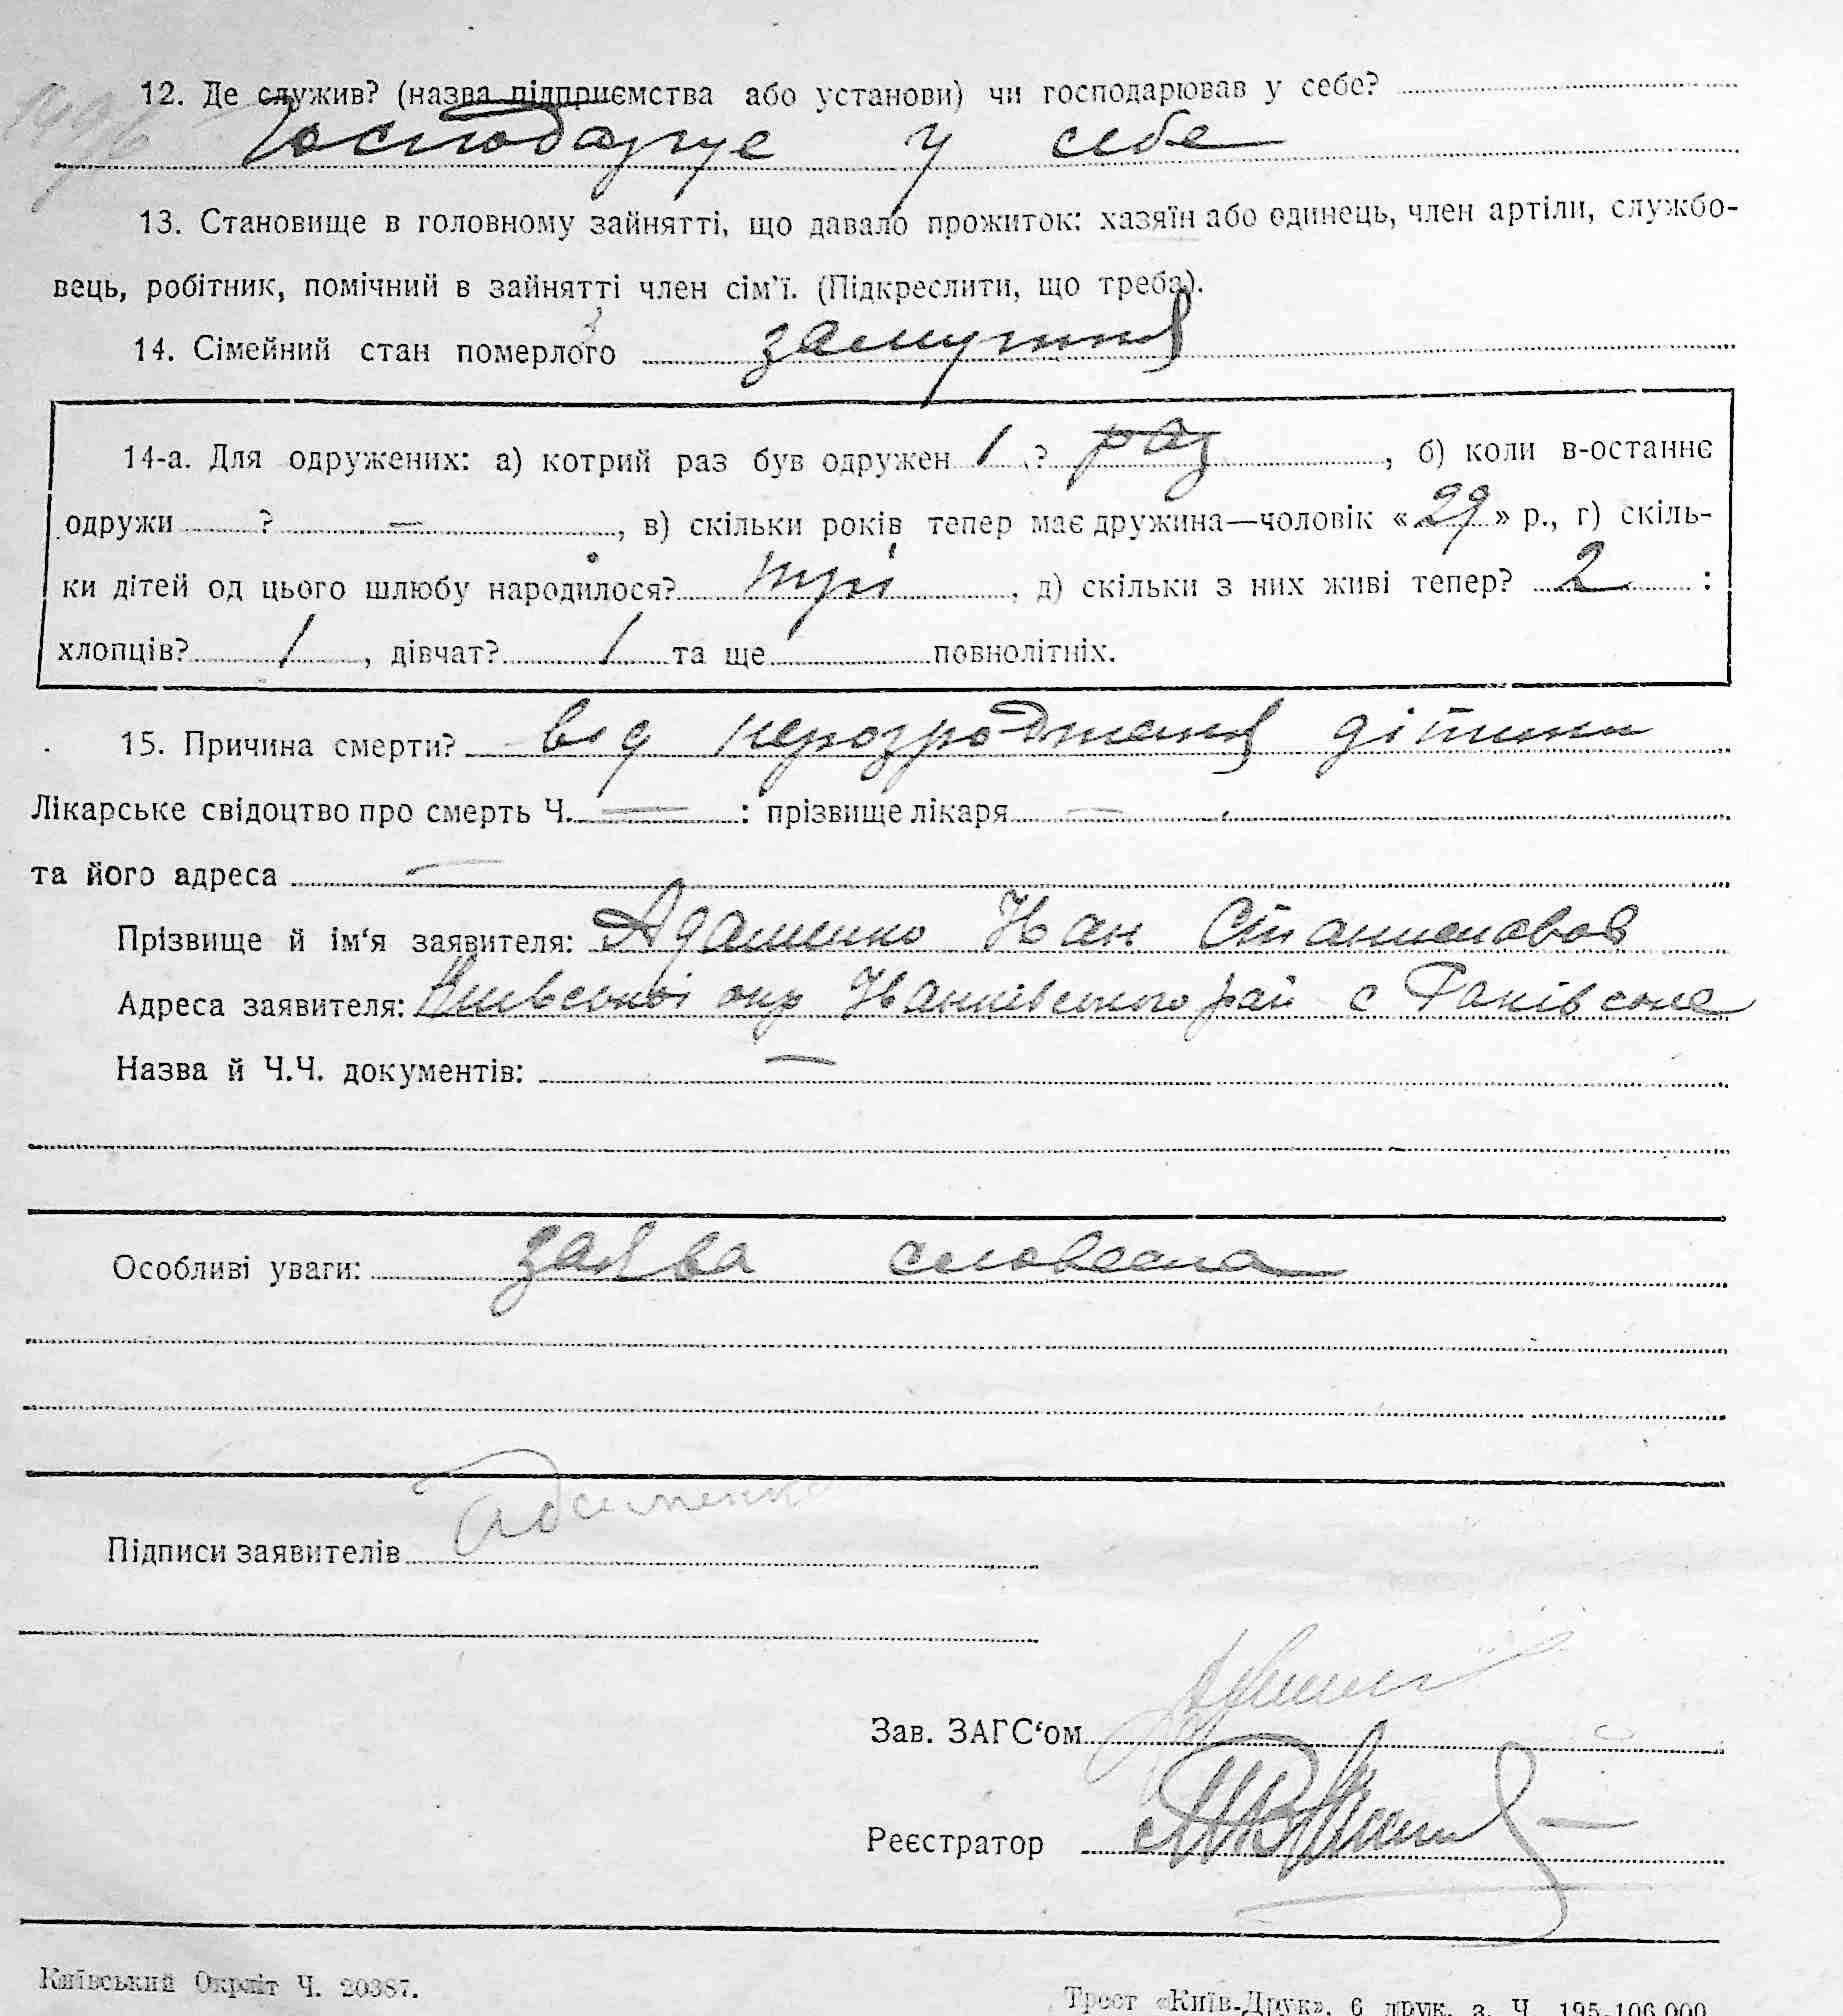 12. Де служив? (назва підприємства або установи) чи господарював у себе?
Господарує у себе
13. Становище в головному зайнятті, що давало прожиток: хазяїн або одинець, член артіли, службо-
вець, робітник, помічний в зайнятті член сім'ї. (Підкреслити, що треба).
14. Сімейний стан померлого замужня
14-а. Для одружених: а) котрий раз був одружен 1 ? раз, б) коли в-останнє
одружи ? —, в) скільки років тепер має дружина—чоловік «29» р., г) скіль-
ки дітей од цього шлюбу народилося? три, д) скільки з них живі тепер? 2 :
хлопців? 1, дівчат? 1 та ще повнолітніх.
15. Причина смерти? від нерозродження дітини
Лікарське свідоцтво про смерть Ч. — : прізвище лікаря —
та його адреса —
Прізвище й ім'я заявителя: Адаменко Иан
Адреса заявителя: окр Иванківського рай с
Назва й Ч.Ч. документів: —
Особливі уваги: заява словесна
Підписи заявителів Адаменко
Зав. ЗАГС'ом
Реєстратор
Київський Окрліт Ч. 20387.
Трест «Київ-Друк», 6 друк. з. Ч. 195-106.000